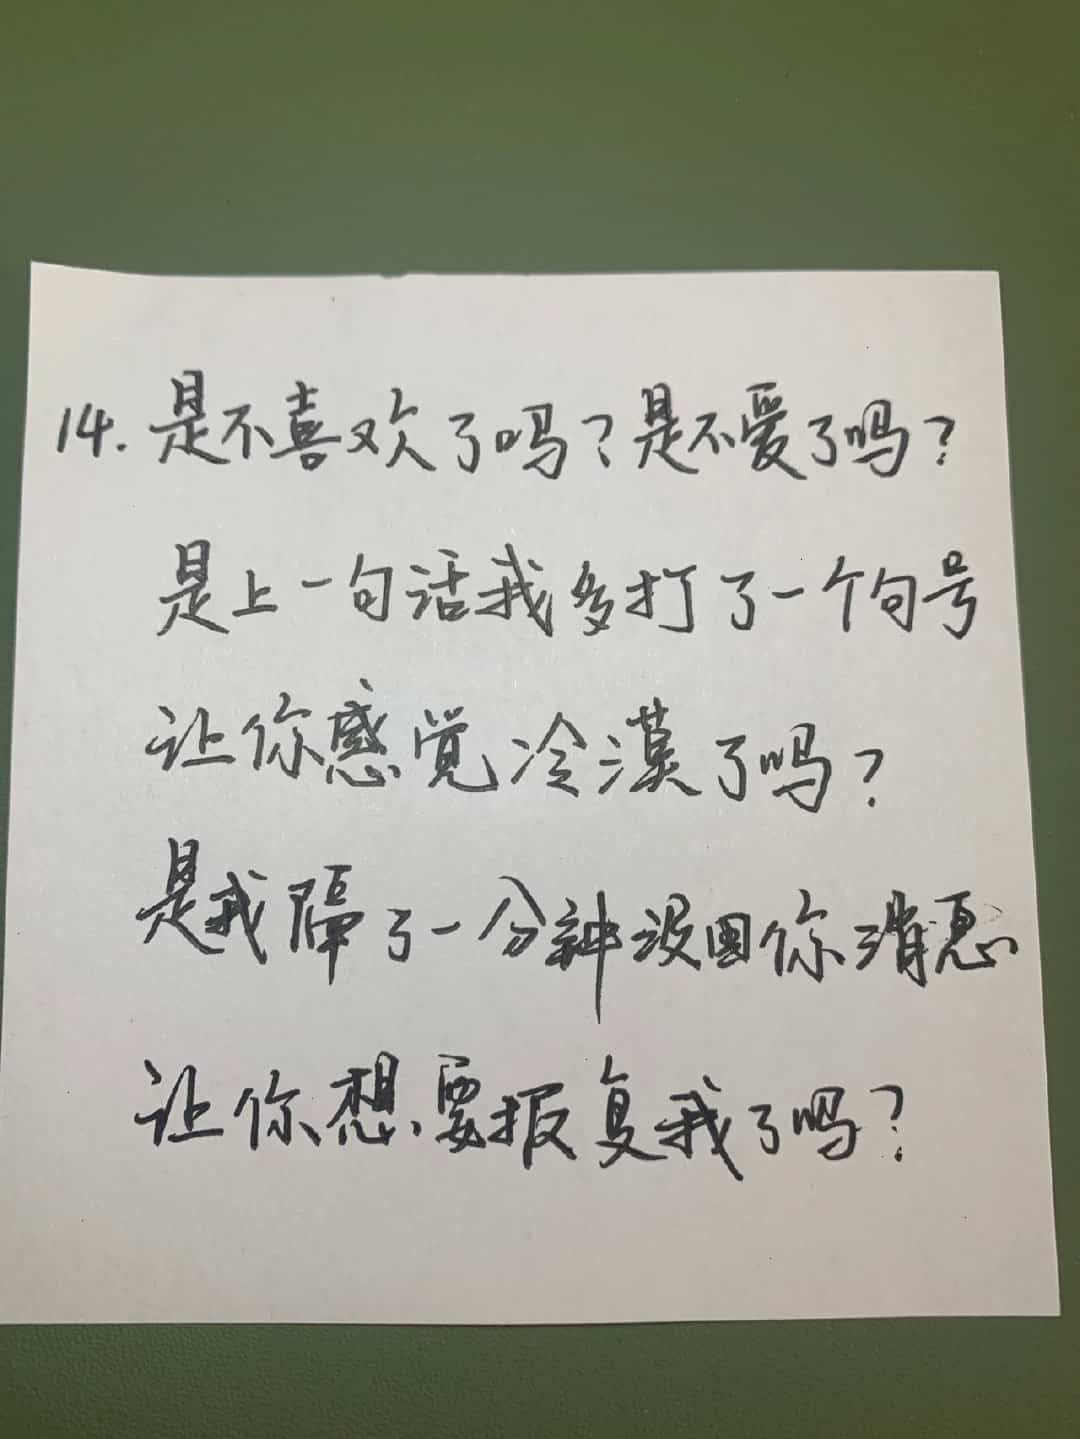 14.是不喜欢了吗?是不爱了吗?
是上一句话我多打了一个句号
让你感觉冷漠了吗?
是我隔了一分钟没回你消息
让你想要报复我了吗?